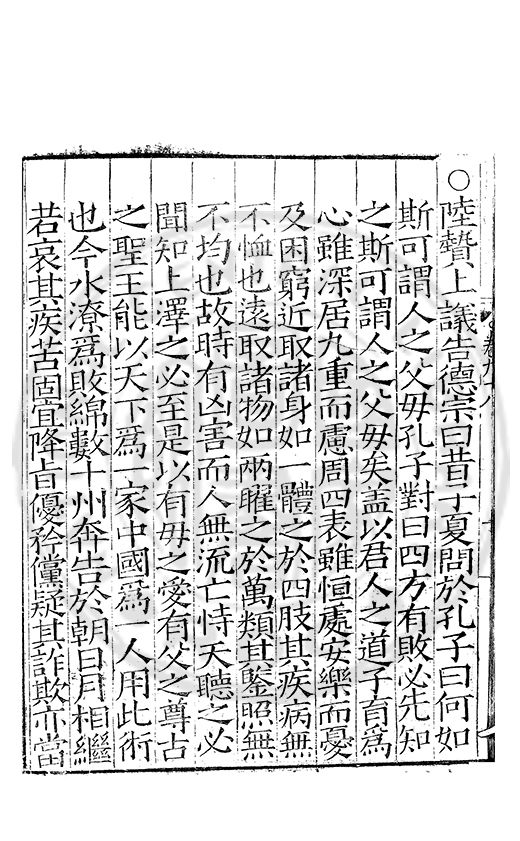 ○陸贄上議告德宗曰昔子夏問於孔子曰何如
斯可謂人之父毋孔子對曰四方有敗必先知
之斯可謂人之父毋矣盖以君人之道子育爲
心雖深居九重而慮周四表雖恒處安樂而憂
及困窮近取諸身如一體之於四肢其疾病無
不恤也遠取諸物如兩曜之於萬類其鑒照無
不均也故時有凶害而人無流亡恃天聽之必
聞知上澤之必至是以有毋之愛有父之尊古
之聖王能以天下爲一家中國爲一人用此術
也今水潦爲敗綿數十州奔告於朝日月相繼
若哀其疾苦固宜降旨優矜儻疑其詐欺亦當